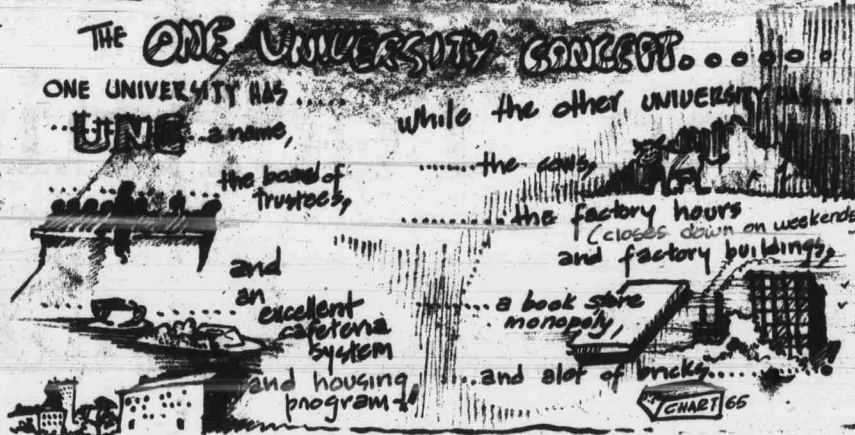 THE ONE UNIVERSITY CONCEPT.......
ONE UNIVERSITY HAS .....
...UNC...a name,
.......... the board of
trustees,
and
an
....... excellent
cafeteria
system
and housing
program...!
while the other UNIVERSITY HAS....
......the cows,
.........the factory hours
(closes down on weekends
and factory buildings,
.........a book store
monopoly,
....and alot of bricks......
CHART 65